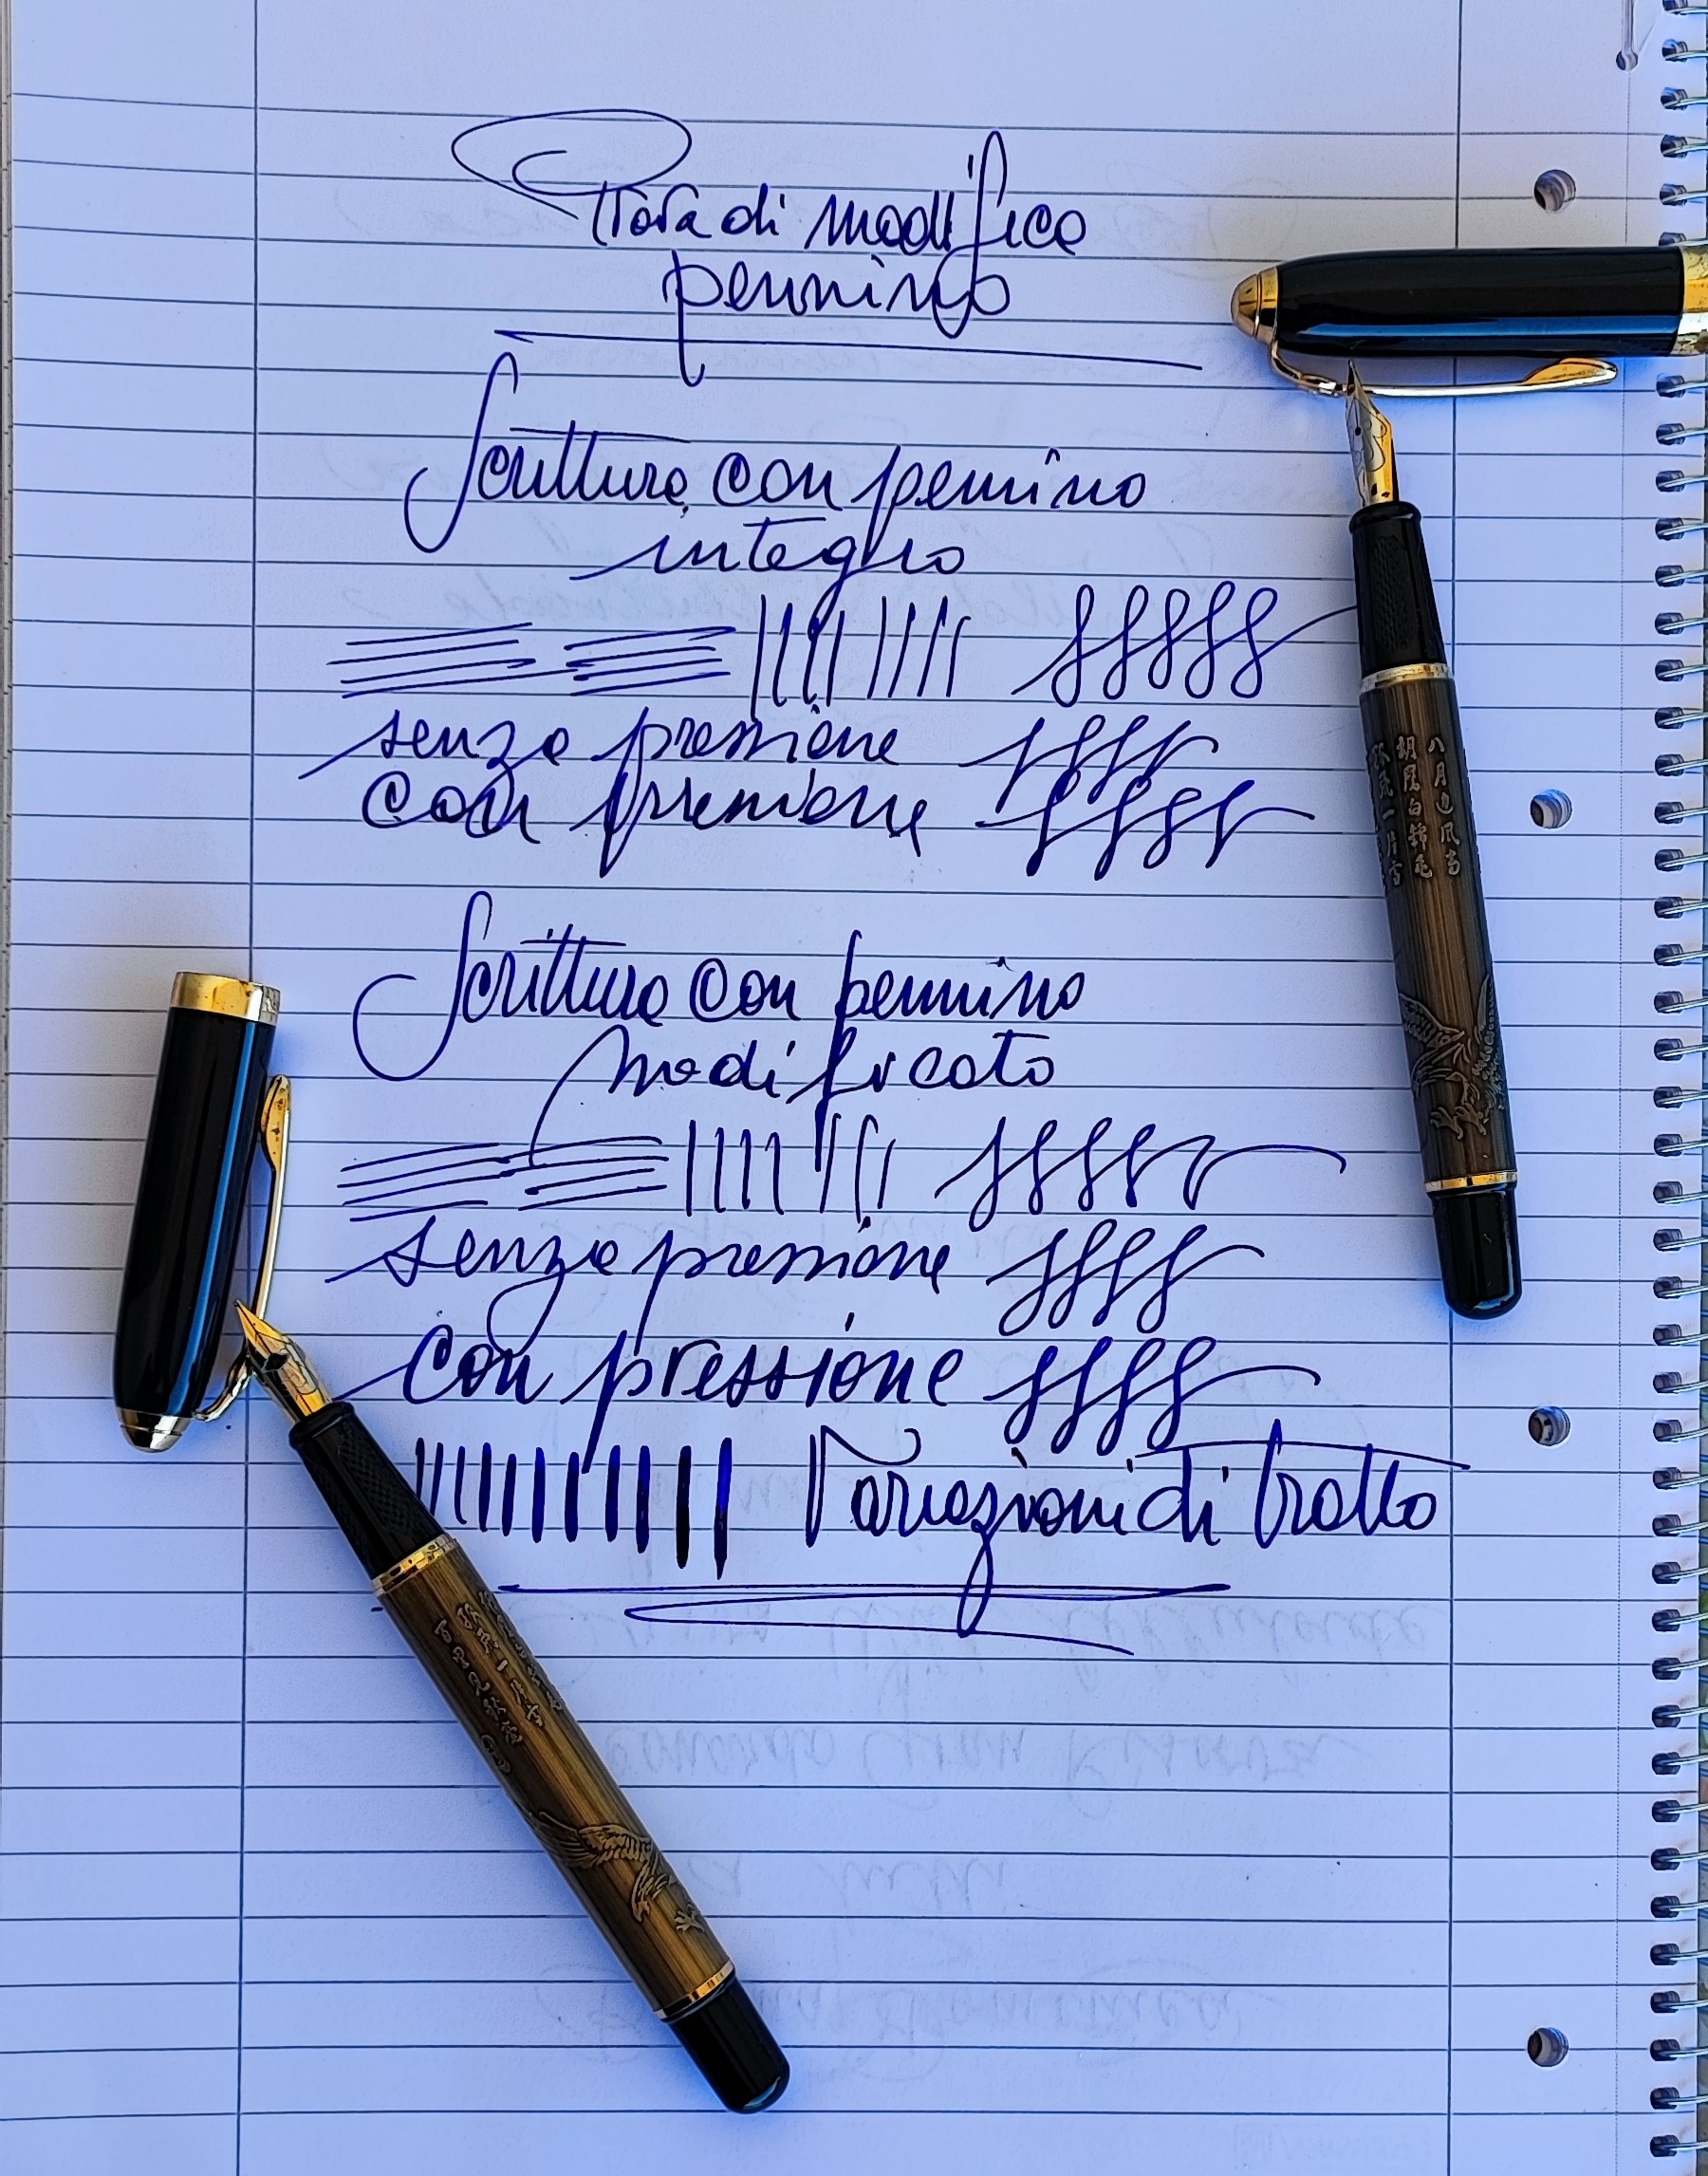 Prova di modifica
pennino
Scrittura con pennino
integro
senza pressione
con pressione
Scrittura con pennino
modificato
senza pressione
con pressione
Variazioni di tratto
八月邊風高
胡鷹白錦毛